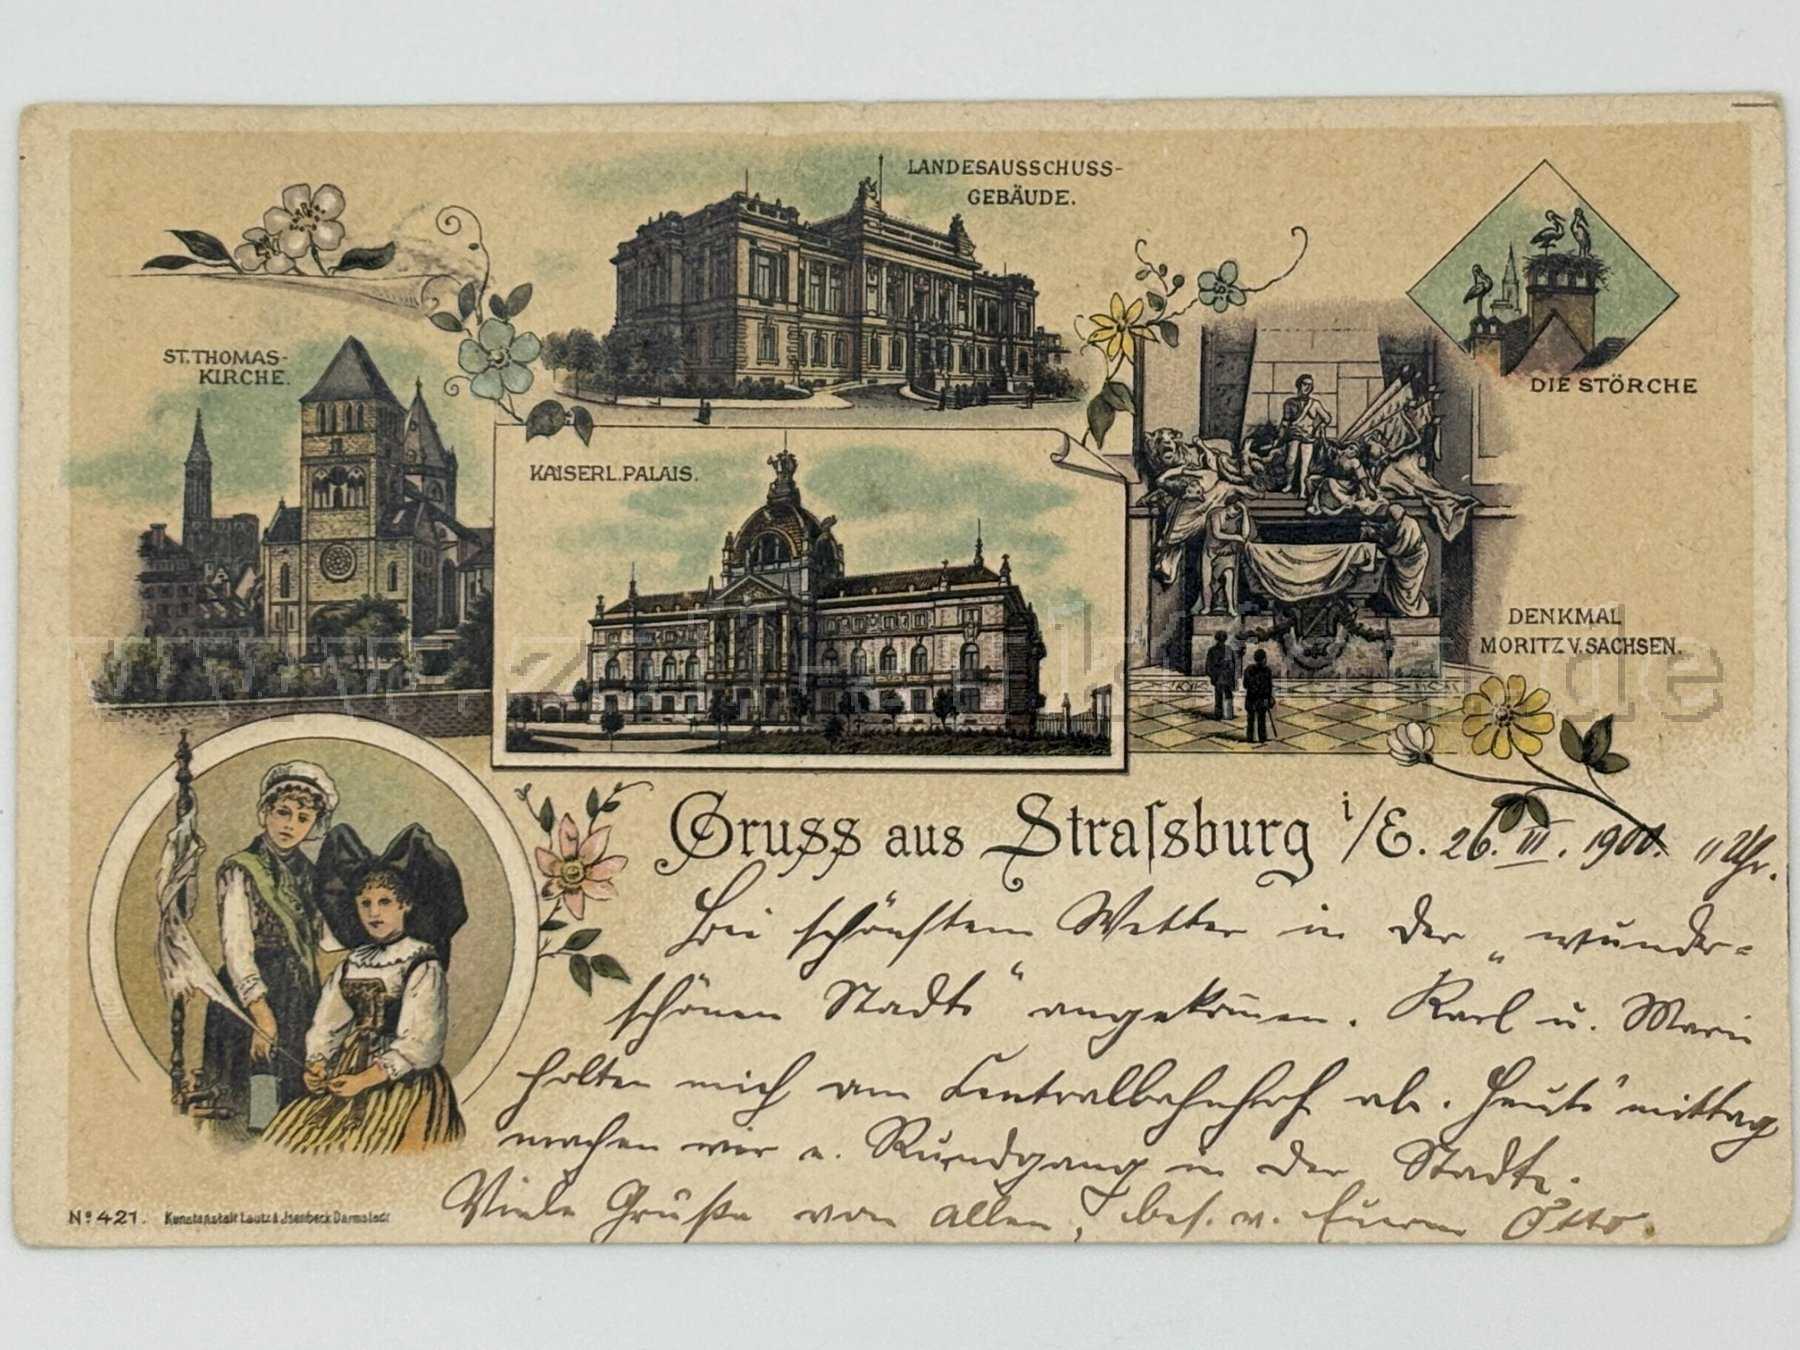 LANDESAUSSCHUSS-
GEBÄUDE.
ST. THOMAS-
KIRCHE.
KAISERL. PALAIS.
DIE STÖRCHE
DENKMAL
MORITZ V. SACHSEN.
www.zeitreliktien.de
Gruss aus Straſsburg i/E. 26. III. 1900. 11 Uhr.
Bei schönstem Wetter in der „wunder=
schönen Stadt" angekom̄en. Karl u. Marie
holten mich am Centralbahnhof ab. Heute mittag
machen wir e. Rundgang in der Stadt.
Viele Grüße von allen, bes. v. Eurem Otto.
No 421. Kunstanstalt Lautz & Jsenbeck Darmstadt